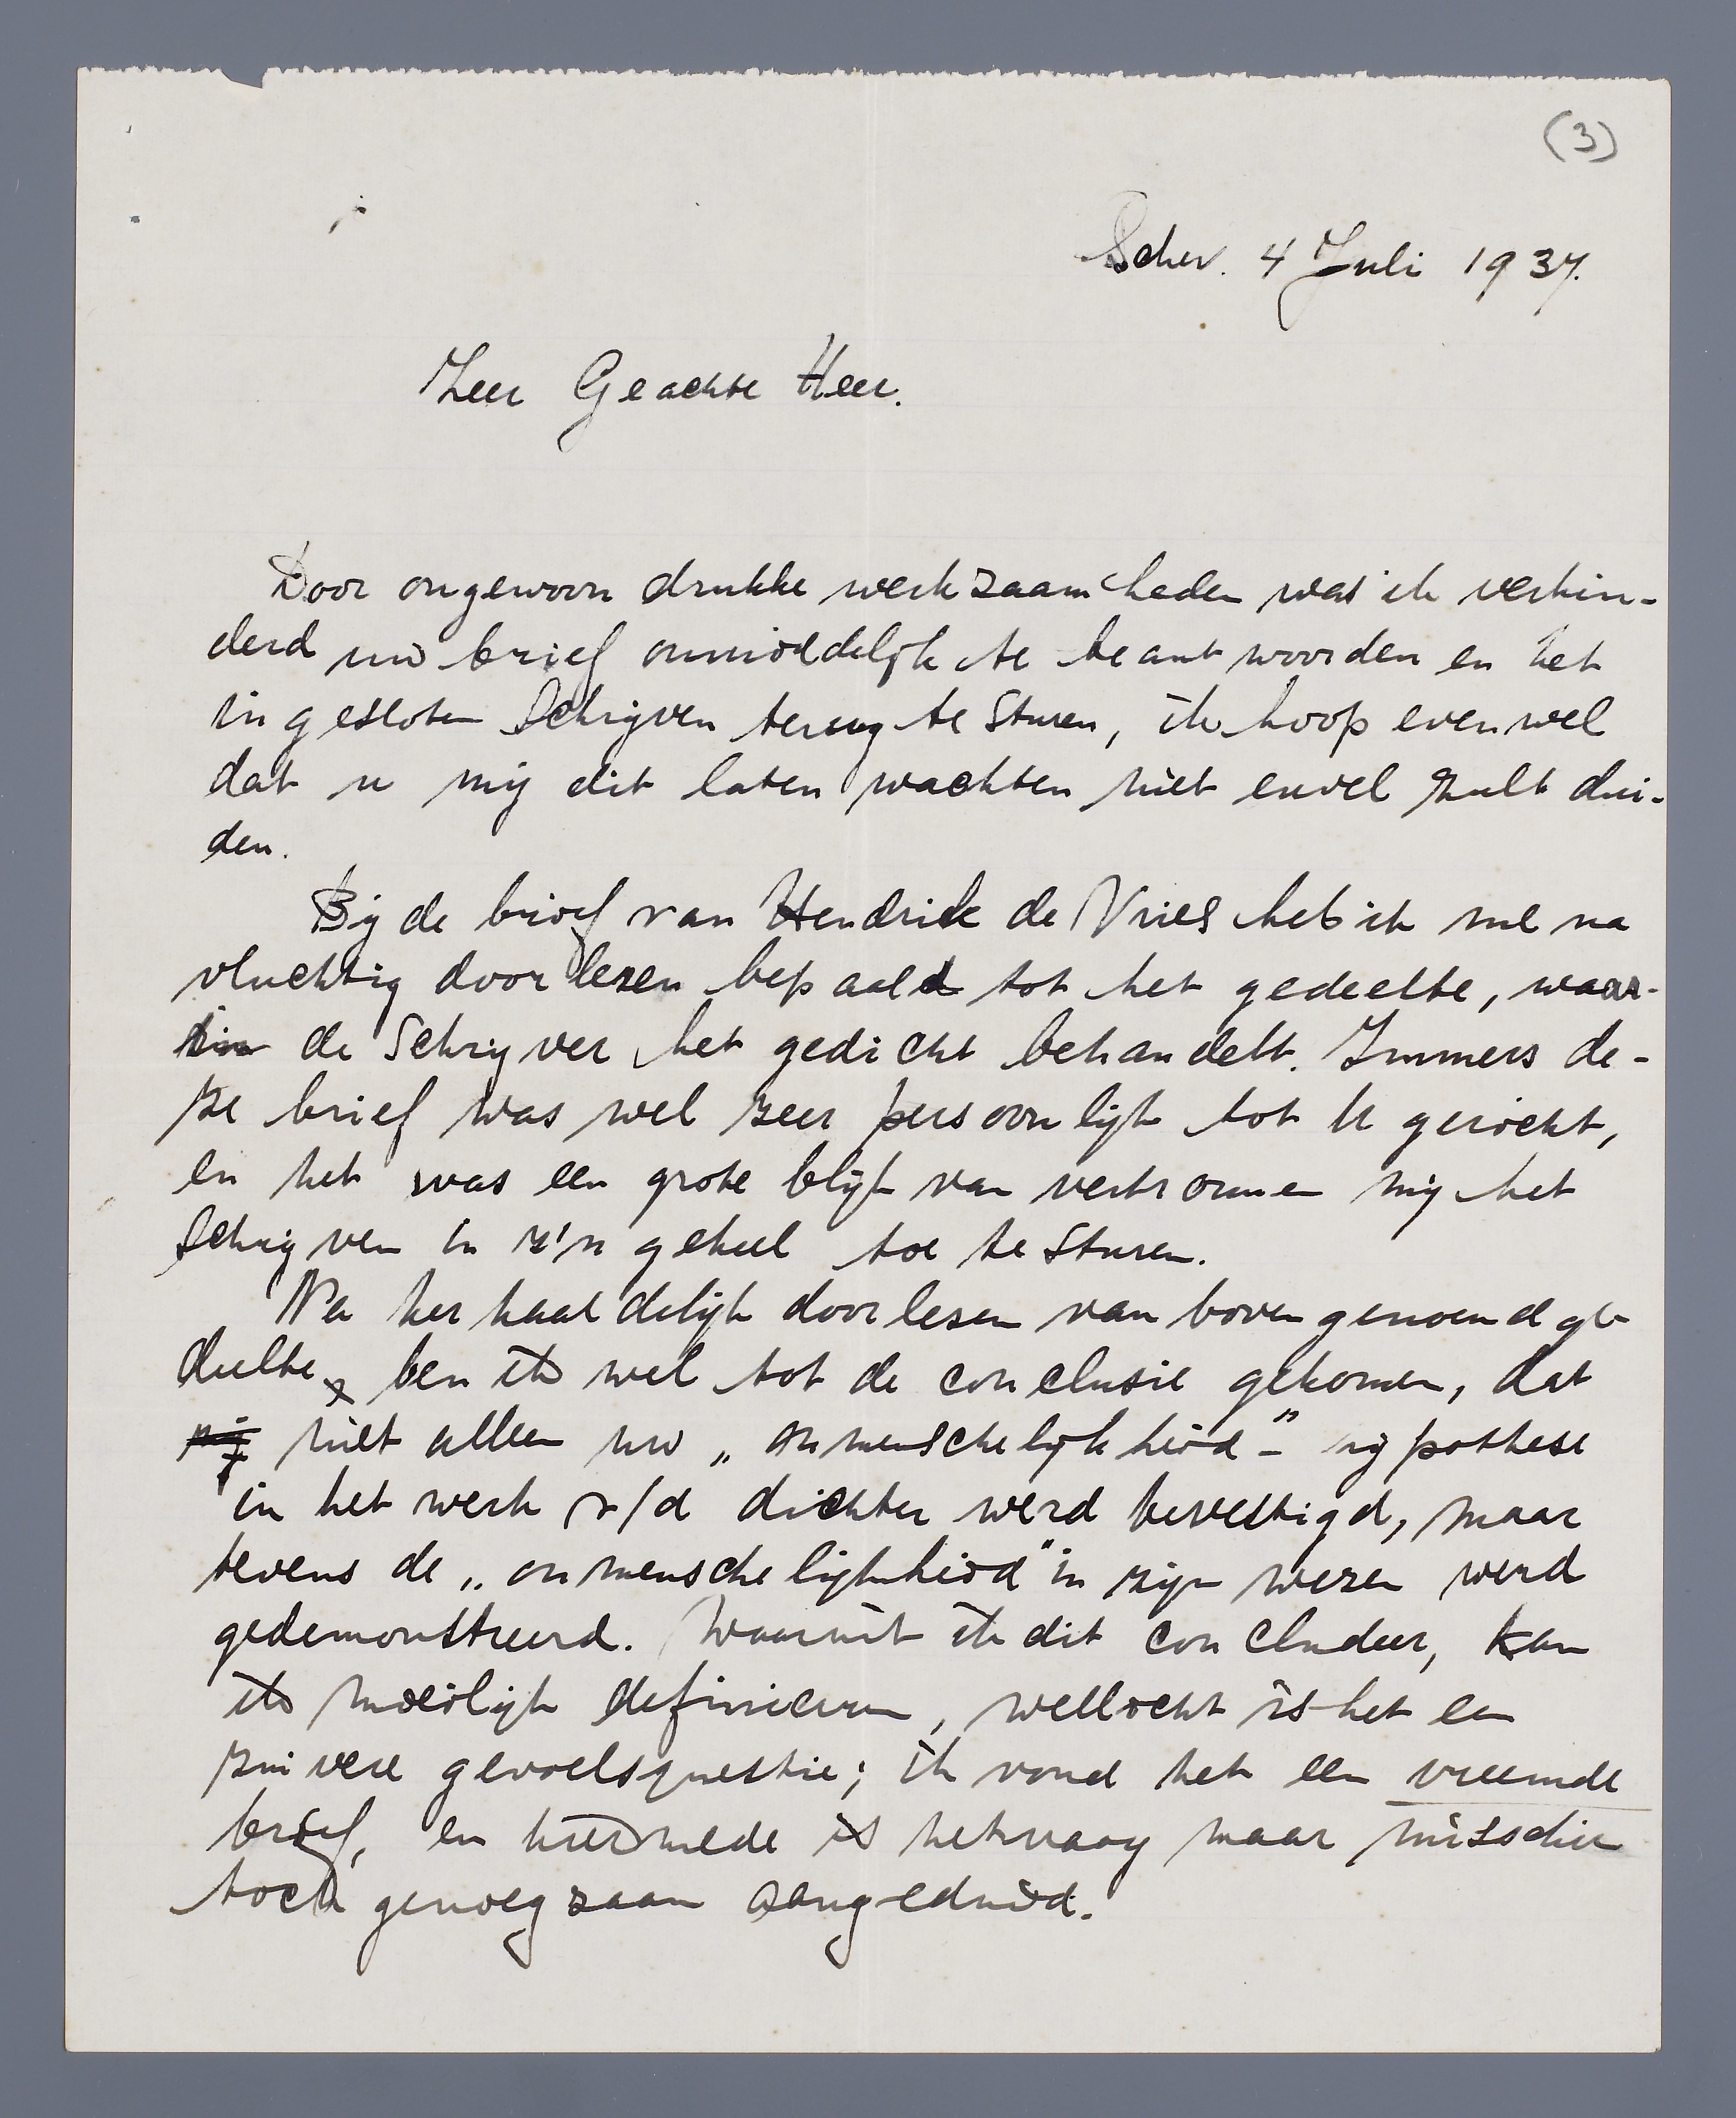 (3)
Schev. 4 Juli 1937.
Zeer Geachte Heer.
Door ongewoon drukke werkzaamheden was ik verhin-
derd uw brief onmiddelijk te beantwoorden en het
ingesloten schrijven terug te sturen, ik hoop evenwel
dat u mij dit laten wachten niet euvel zult dui-
den.
Bij de brief van Hendrik de Vries heb ik me na
vluchtig doorlezen bepaald tot het gedeelte, waar-
in de schrijver het gedicht behandelt. Immers de-
ze brief was wel zeer persoonlijk tot U gericht,
en het was een grote blijk van vertrouwen mij het
schrijven in z'n geheel toe te sturen.
Na herhaaldelijk doorlesen van bovengenoemd ge-
deelte, ben ik wel tot de conclusie gekomen, dat
niet alleen uw „onmenschelijkheid"- hypothese
in het werk v/d dichter werd bevestigd, maar
tevens de „onmenschelijkheid" in zijn wezen werd
gedemonstreerd. Waaruit ik dit concludeer, kan
ik moeilijk definieeren, wellicht is het een
zuivere gevoelsquestie; ik vond het een vreemde
brief, en hiermede is het vaag maar misschien
toch genoegzaam aangeduid.